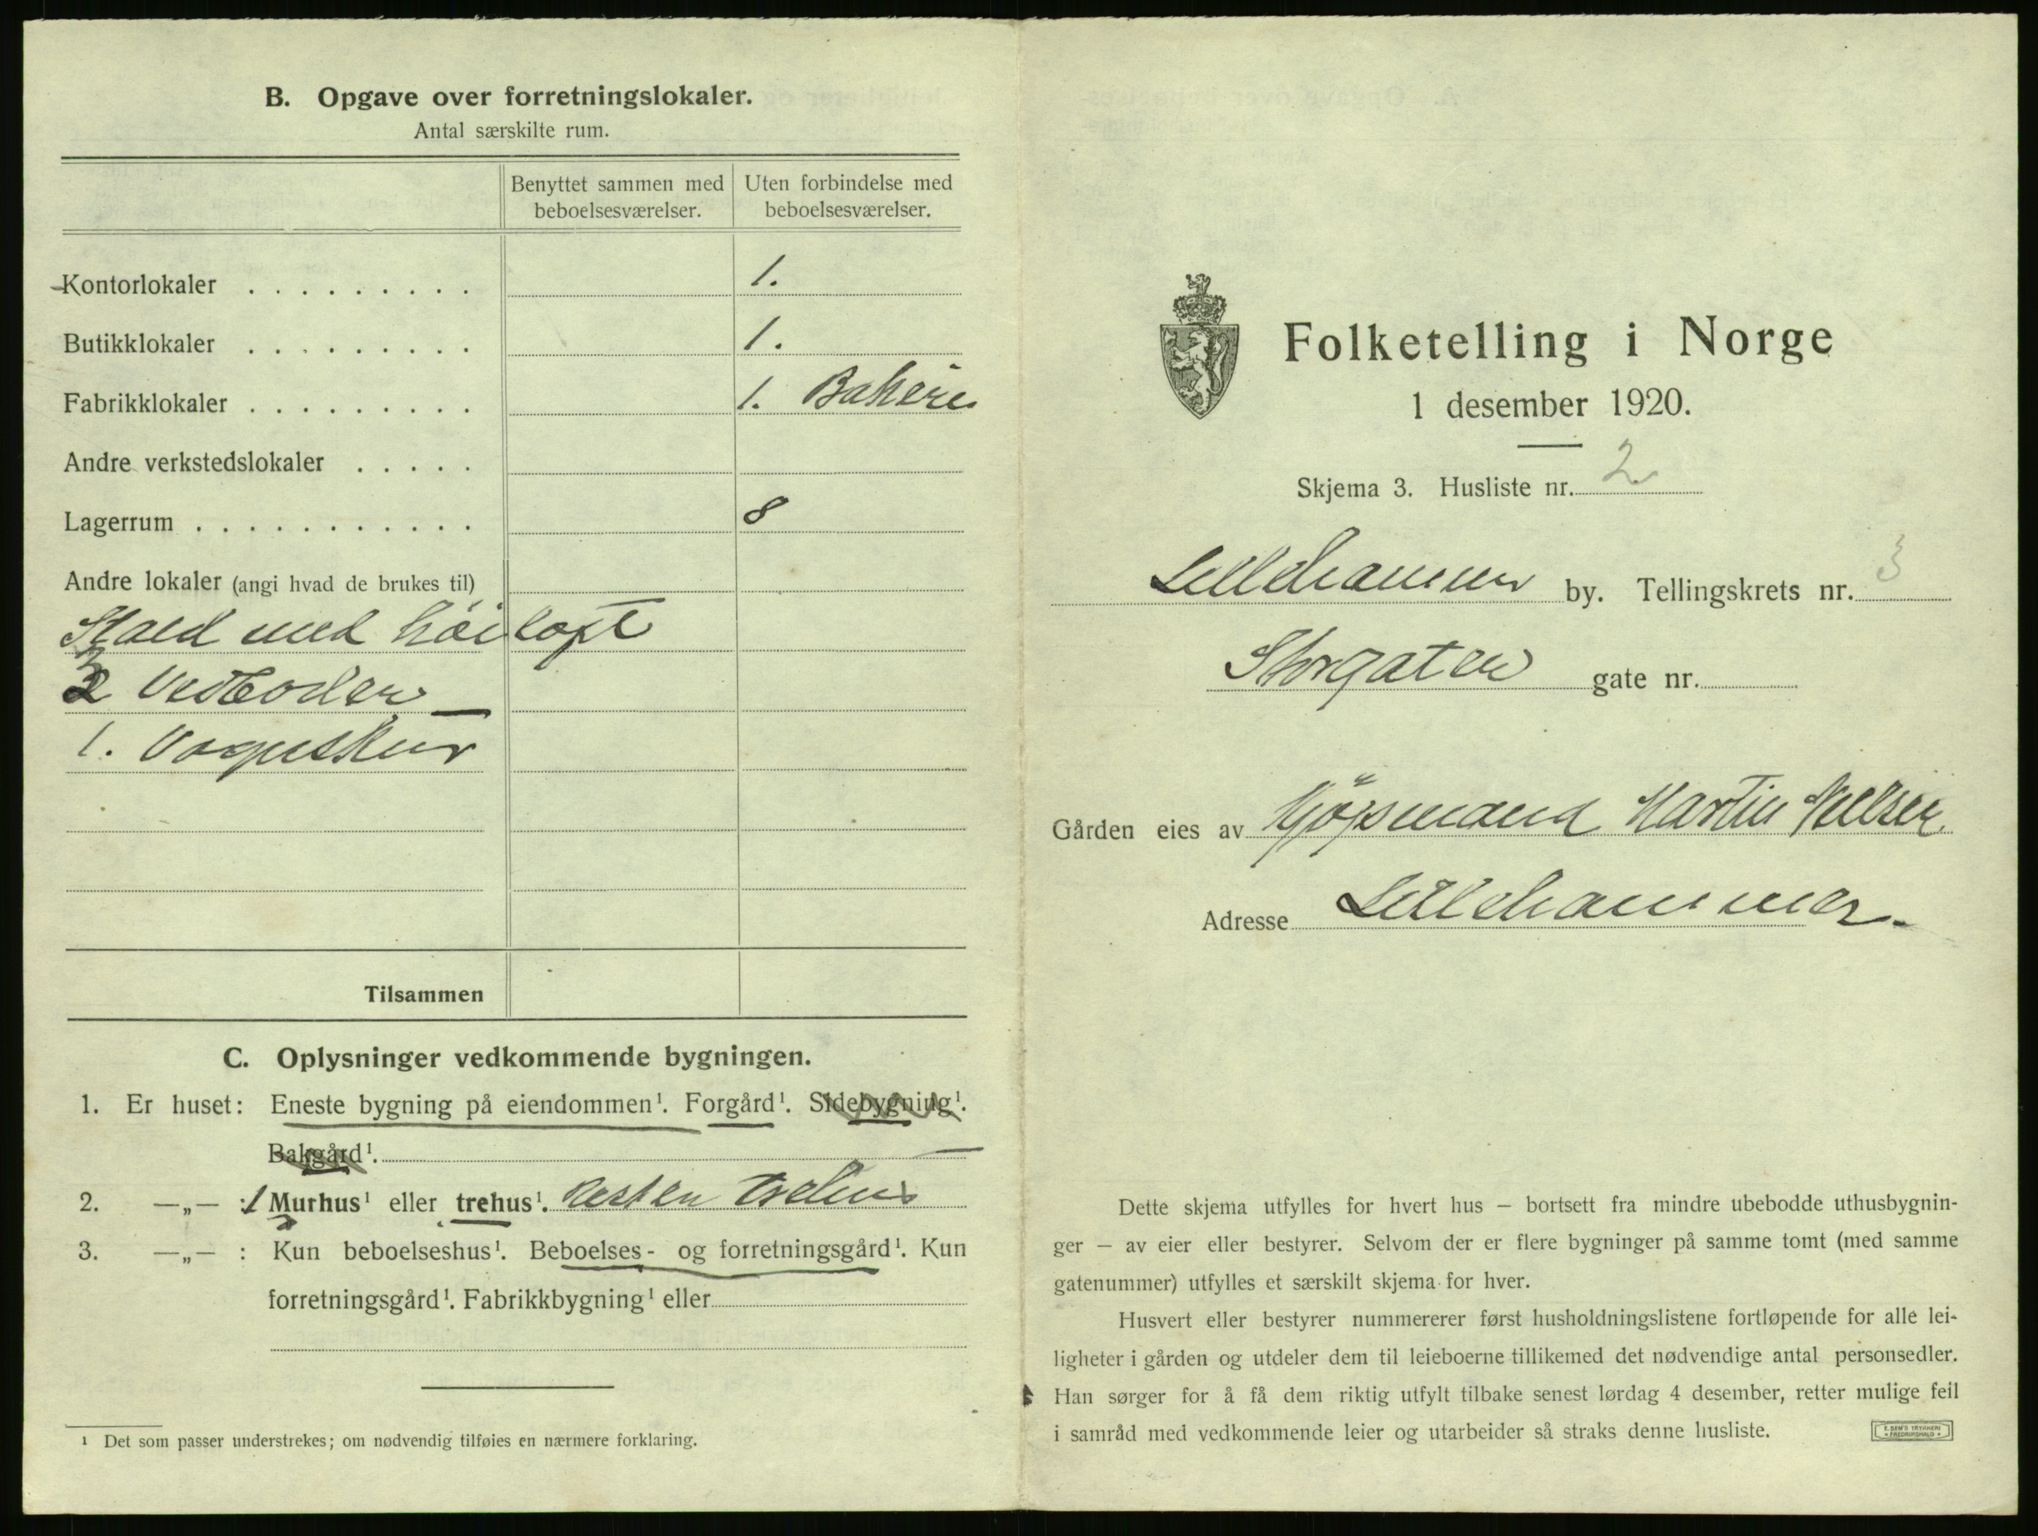 B. Opgave over forretningslokaler.
Antal særskilte rum.
Benyttet sammen med beboelsesværelser.
Uten forbindelse med beboelsesværelser.
Kontorlokaler . . . . . . . . . 1.
Butikklokaler . . . . . . . . . 1.
Fabrikklokaler . . . . . . . . . 1. Bakeri
Andre verkstedslokaler . . . . .
Lagerrum . . . . . . . . . . . . 8
Andre lokaler (angi hvad de brukes til)
Stald med höiloft
Vedboder
1. Vognskur
Tilsammen
C. Oplysninger vedkommende bygningen.
1. Er huset: Eneste bygning på eiendommen¹. Forgård¹. Sidebygning¹.
Bakgård¹.
2. —„— : 1 Murhus¹ eller trehus¹. Resten trehus
3. —„— : Kun beboelseshus¹. Beboelses- og forretningsgård¹. Kun
forretningsgård¹. Fabrikkbygning¹ eller
¹ Det som passer understrekes; om nødvendig tilføies en nærmere forklaring.
Folketelling i Norge
1 desember 1920.
Skjema 3. Husliste nr. 2
Lillehammer by. Tellingskrets nr. 3
Storgaten gate nr.
Gården eies av Kjöpmand Martin Nilsen.
Adresse Lillehammer.
Dette skjema utfylles for hvert hus — bortsett fra mindre ubebodde uthusbygnin-
ger — av eier eller bestyrer. Selvom der er flere bygninger på samme tomt (med samme
gatenummer) utfylles et særskilt skjema for hver.
Husvert eller bestyrer nummererer først husholdningslistene fortløpende for alle lei-
ligheter i gården og utdeler dem til leieboerne tillikemed det nødvendige antal personsedler.
Han sørger for å få dem riktig utfylt tilbake senest lørdag 4 desember, retter mulige feil
i samråd med vedkommende leier og utarbeider så straks denne husliste.